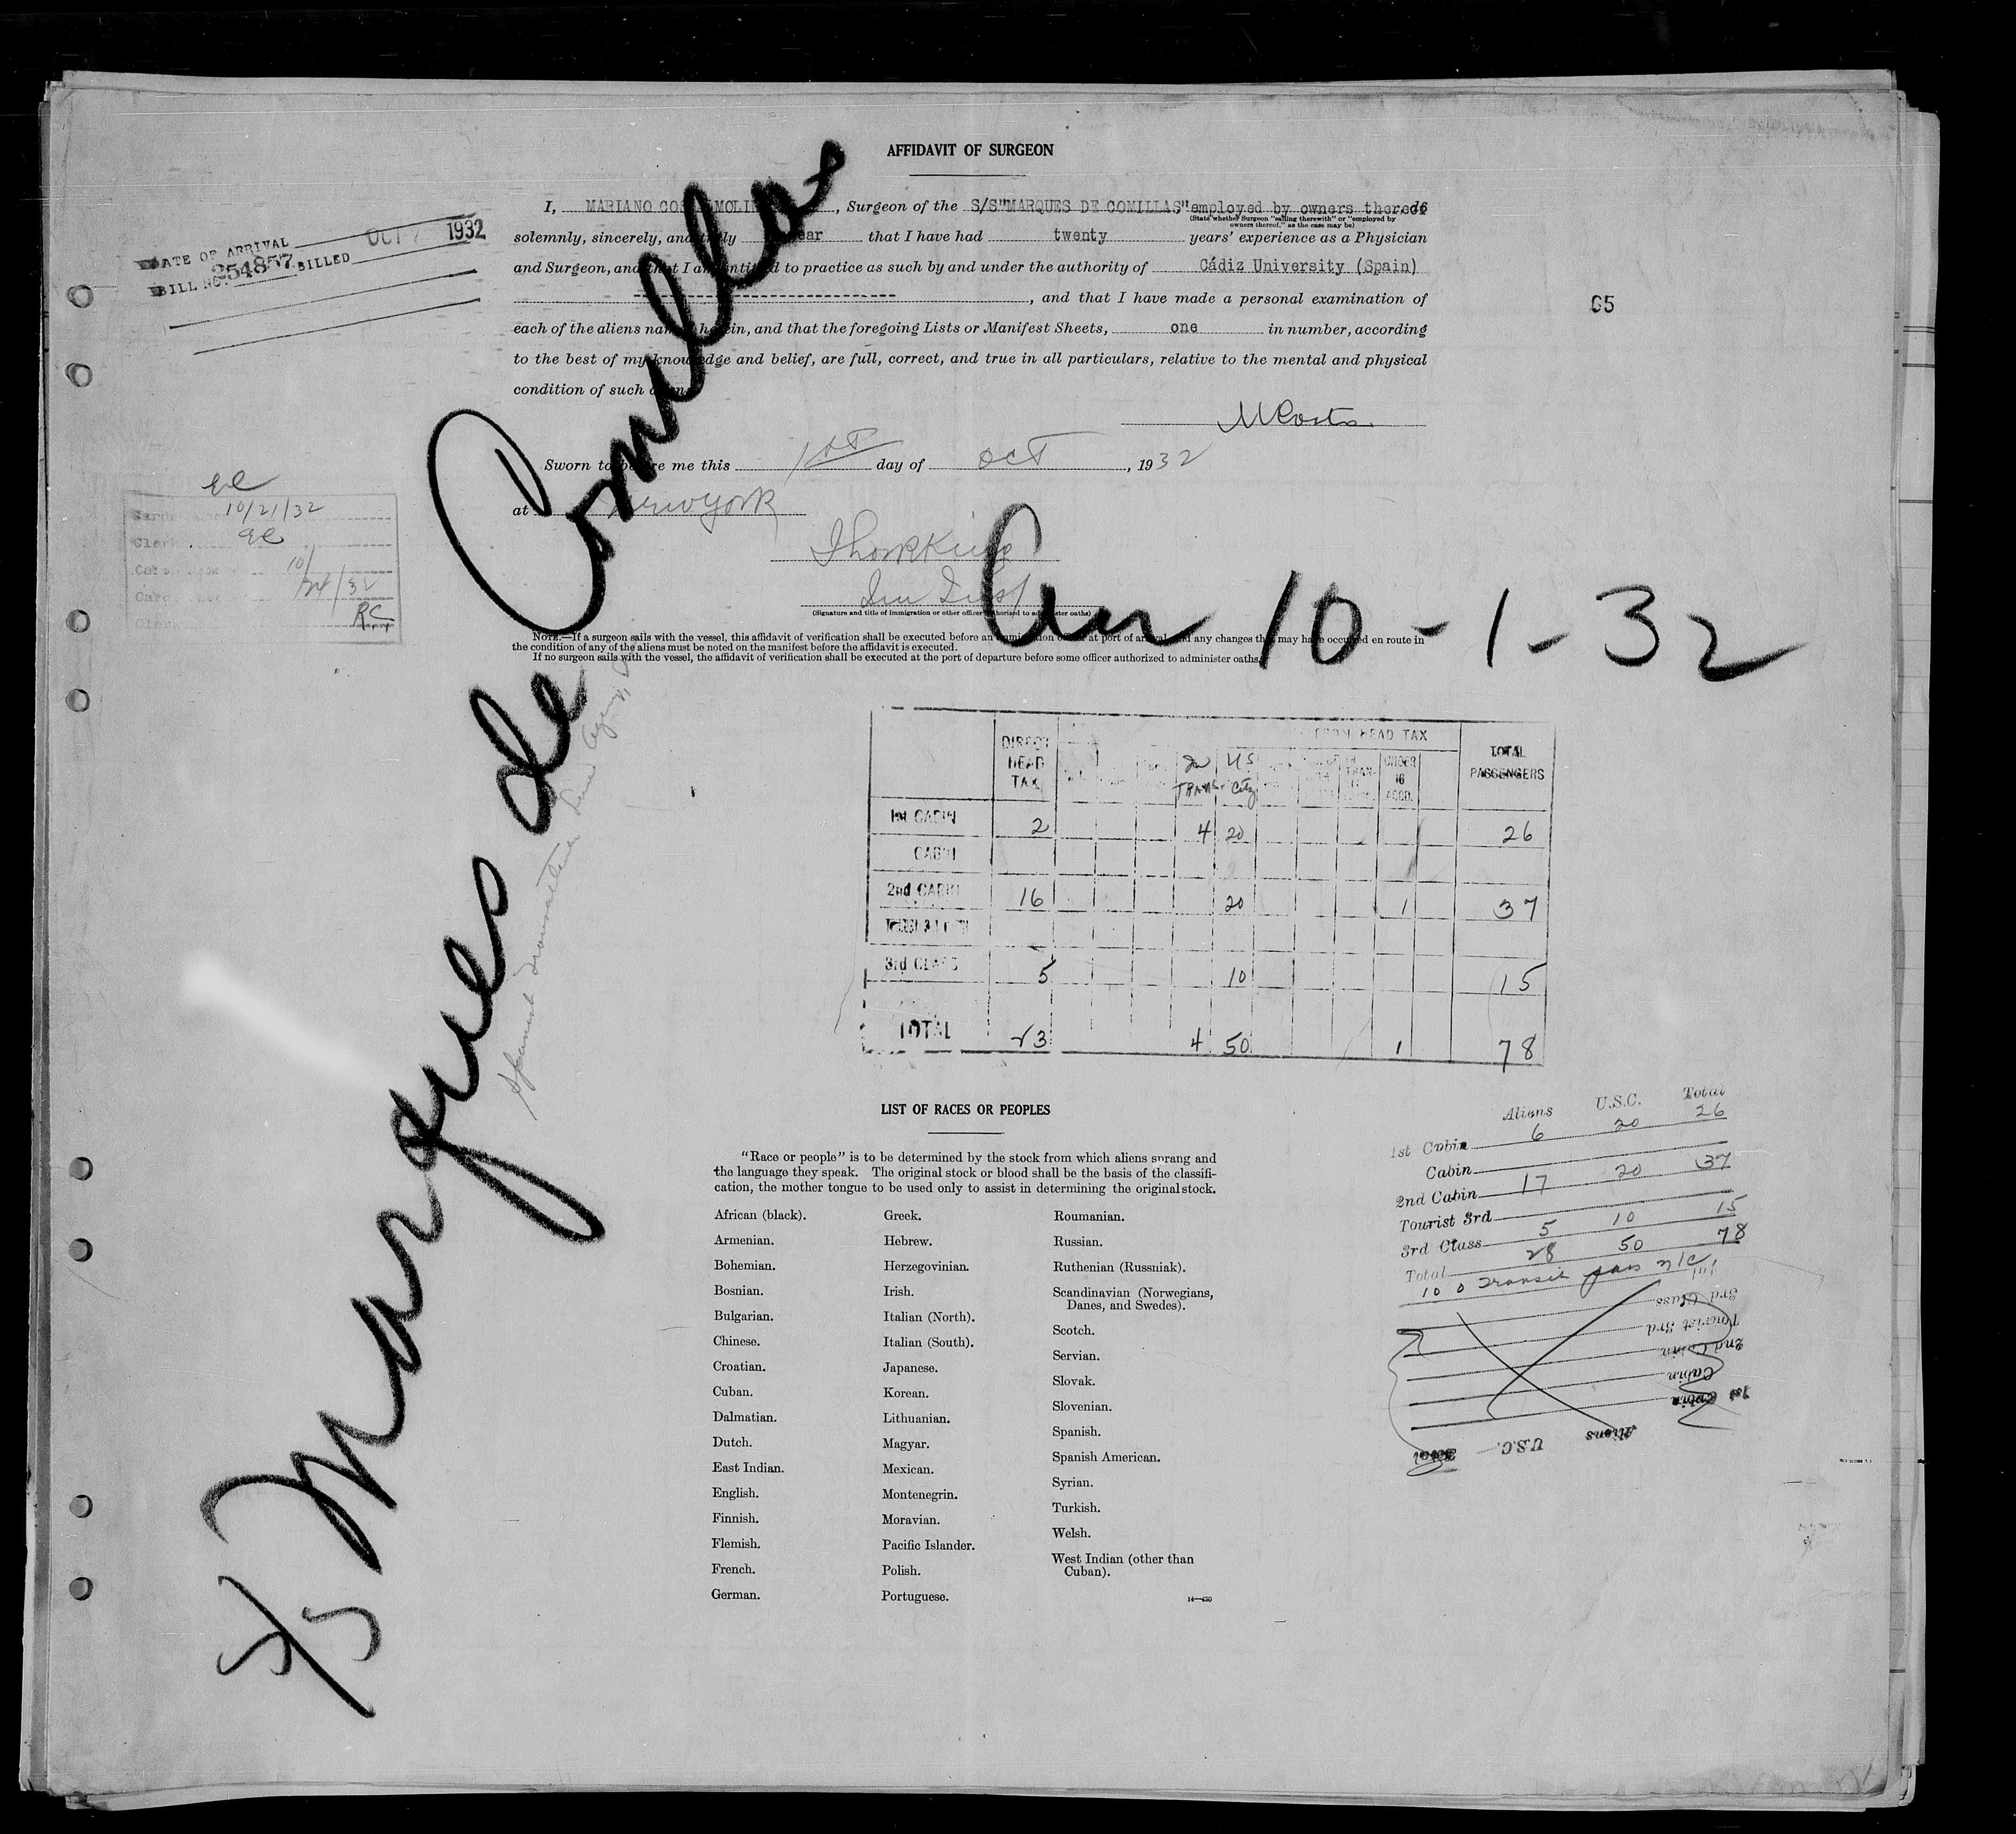 AFFIDAVIT OF SURGEON
I, MARIANO , Surgeon of the S/S"MARQUES DE COMILLAS" employed by owners thereof
(State whether Surgeon "sailing therewith" or "employed by
owners thereof," as the case may be)
solemnly, sincerely, and truly that I have had twenty years' experience as a Physician
and Surgeon, and that I am entitled to practice as such by and under the authority of Cádiz University (Spain)
, and that I have made a personal examination of
each of the aliens named herein, and that the foregoing Lists or Manifest Sheets, one in number, according
to the best of my knowledge and belief, are full, correct, and true in all particulars, relative to the mental and physical
condition of such aliens
MCosta
Sworn to before me this 1st day of Oct, 1932
at New York
(Signature and title of immigration or other officer authorized to administer oaths)
NOTE.—If a surgeon sails with the vessel, this affidavit of verification shall be executed before an immigration officer at port of arrival, and any changes that may have occurred en route in
the condition of any of the aliens must be noted on the manifest before the affidavit is executed.
If no surgeon sails with the vessel, the affidavit of verification shall be executed at the port of departure before some officer authorized to administer oaths.
DATE OF ARRIVAL OCT 1932
BILL NO. 254857 BILLED
65
10/21/32
10/24/32
RC
S/S Marques de Comillas
Arr 10-1-32
DIRECT HEAD TAX
HEAD TAX
TOTAL PASSENGERS
In TRANS.
US City
UNDER 16 ACCD.
1st CABIN 2 4 20 26
CABIN
2nd CABIN 16 20 1 37
3rd CLASS 5 10 15
TOTAL 23 4 50 1 78
LIST OF RACES OR PEOPLES
"Race or people" is to be determined by the stock from which aliens sprang and
the language they speak. The original stock or blood shall be the basis of the classifi-
cation, the mother tongue to be used only to assist in determining the original stock.
African (black).
Armenian.
Bohemian.
Bosnian.
Bulgarian.
Chinese.
Croatian.
Cuban.
Dalmatian.
Dutch.
East Indian.
English.
Finnish.
Flemish.
French.
German.
Greek.
Hebrew.
Herzegovinian.
Irish.
Italian (North).
Italian (South).
Japanese.
Korean.
Lithuanian.
Magyar.
Mexican.
Montenegrin.
Moravian.
Pacific Islander.
Polish.
Portuguese.
Roumanian.
Russian.
Ruthenian (Russniak).
Scandinavian (Norwegians,
Danes, and Swedes).
Scotch.
Servian.
Slovak.
Slovenian.
Spanish.
Spanish American.
Syrian.
Turkish.
Welsh.
West Indian (other than
Cuban).
14—430
Aliens U.S.C. Total
1st Cabin 6 20 26
Cabin
2nd Cabin 17 20 37
Tourist 3rd
3rd Class 5 10 15
Total 28 50 78
Aliens U.S.C. Total
1st Cabin
Cabin
2nd Cabin
Tourist 3rd
3rd Class